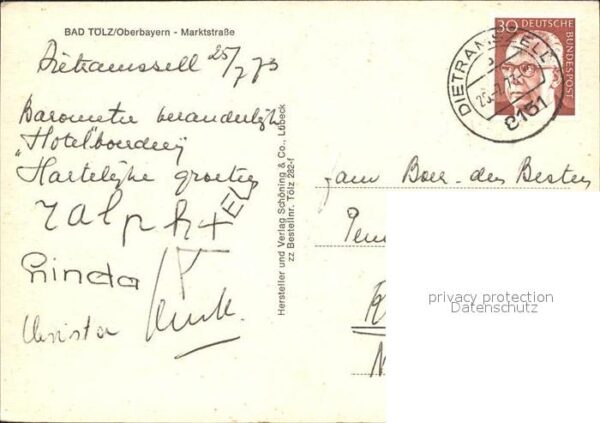 BAD TÖLZ/Oberbayern - Marktstraße
Dietramszell 25/7 73
Barometer veranderlijk
"Hotel"boerderij
Hartelijke groeten
Ralph + EL
Ginda
Christa
Hersteller und Verlag Schöning & Co., Lübeck
zz Bestellnr. Tölz 282-f
30 DEUTSCHE BUNDESPOST
DIETRAMSZELL
8151
fam Boer-den Besten
privacy protection
Datenschutz